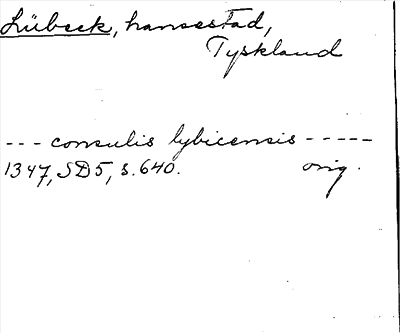 Lübeck, hansestad,
Tyskland
--- consulis lybicensis -----
1347, SD5, s.640. orig.